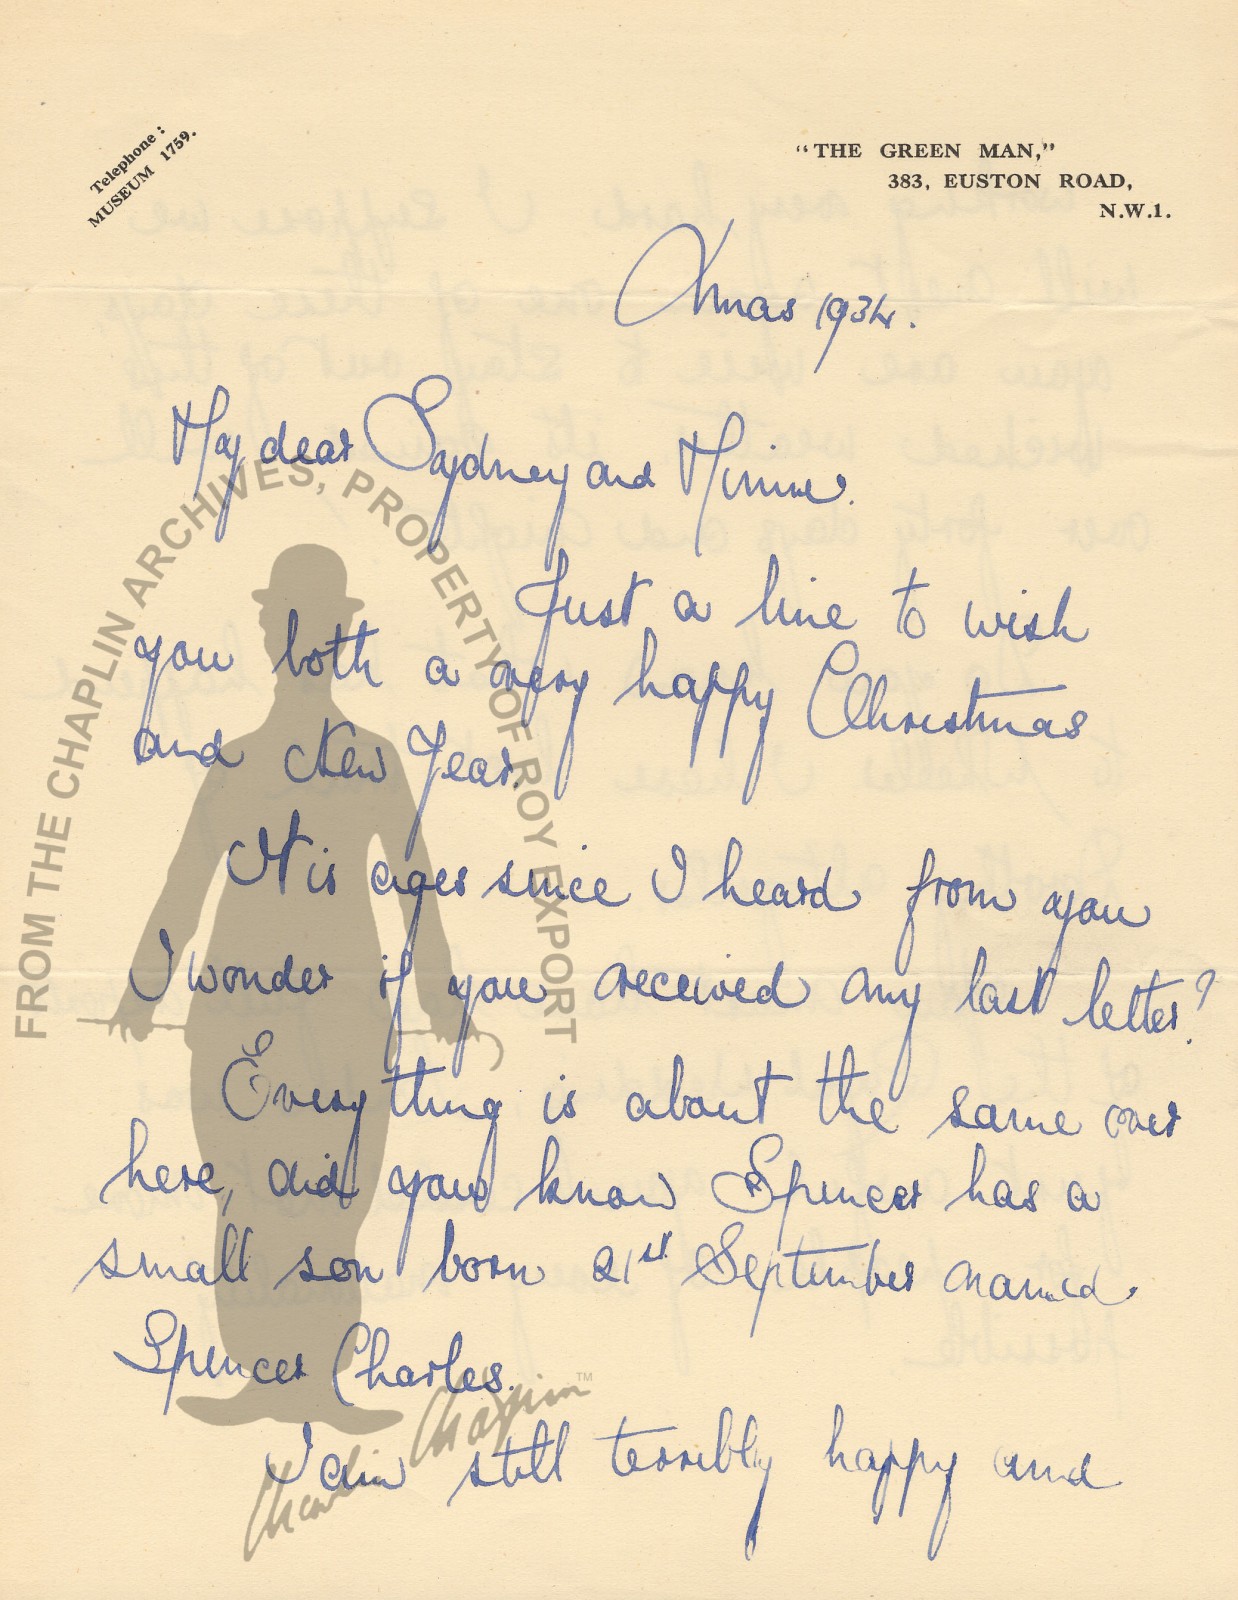 Telephone:
MUSEUM 1759.
"THE GREEN MAN,"
383, EUSTON ROAD,
N.W.1.
Xmas 1934.
My dear Sydney and Minnie.
Just a line to wish
you both a very happy Christmas
and New Year.
It is ages since I heard from you
I wonder if you received my last letter?
Everything is about the same over
here, did you know Spencer has a
small son born 21st September named
Spencer Charles.
I am still terribly happy and
FROM THE CHAPLIN ARCHIVES, PROPERTY OF ROY EXPORT
Charlie Chaplin™